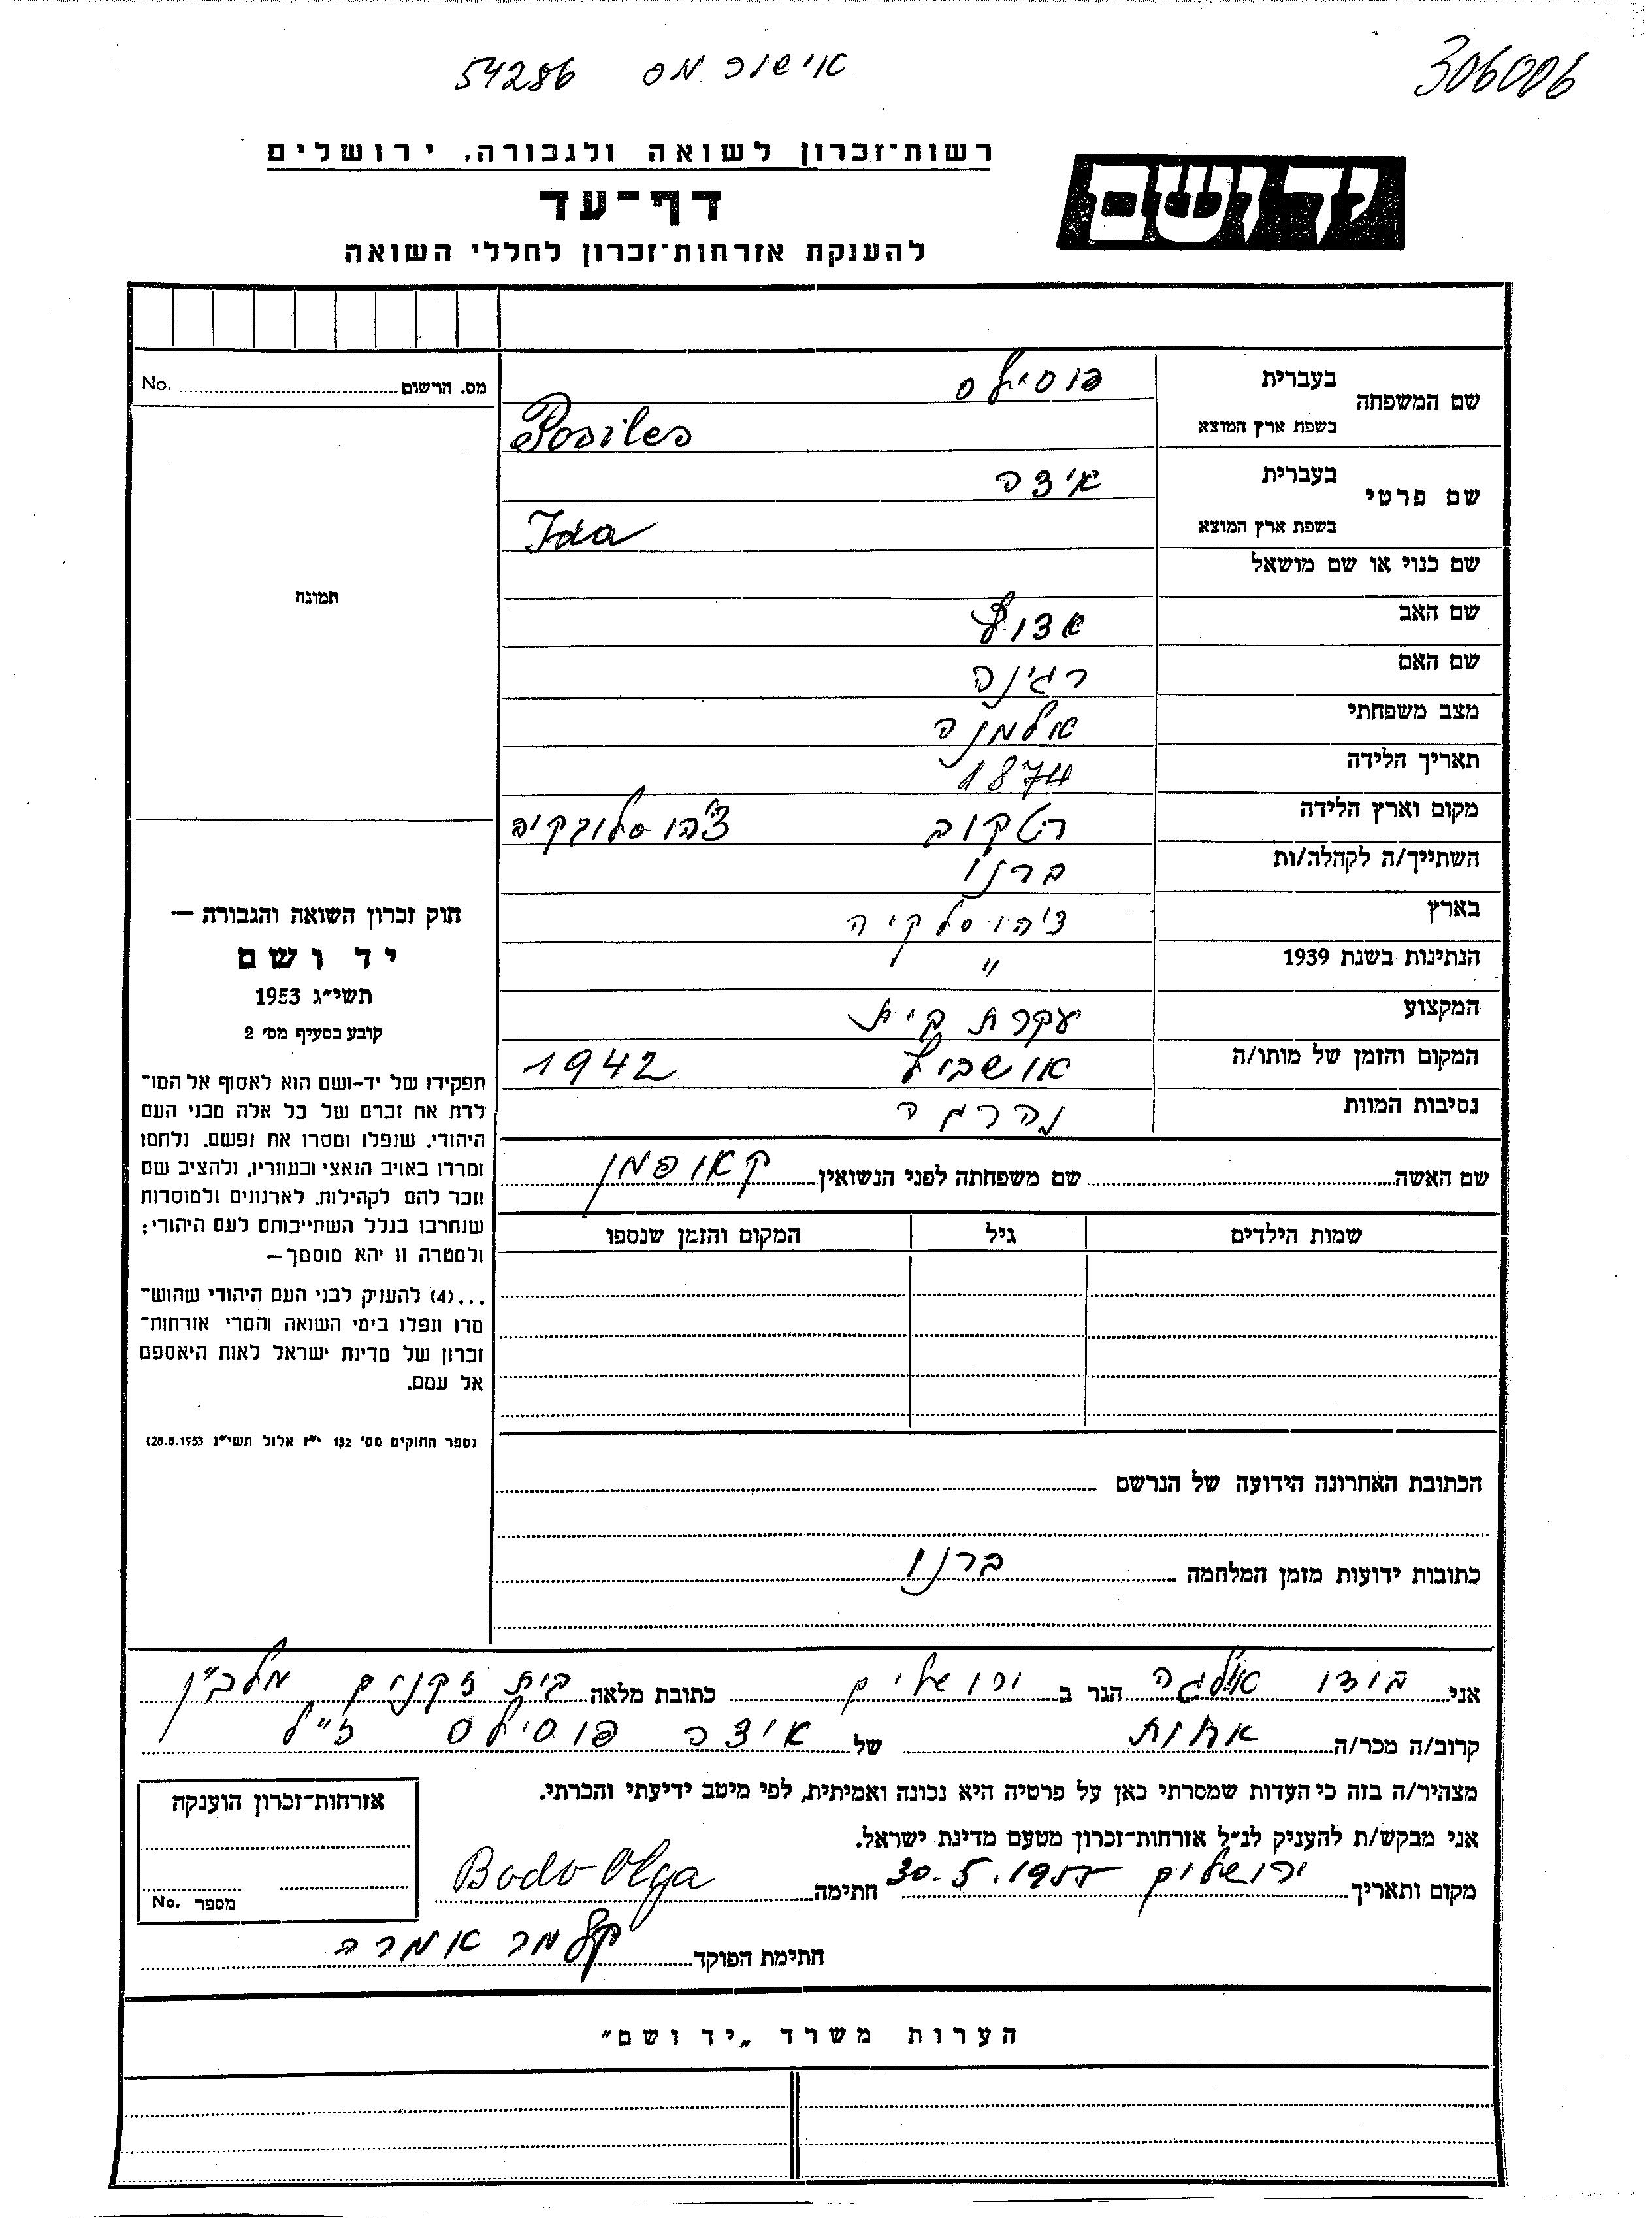 אישור מס 54286
306006
רשות־זכרון לשואה ולגבורה, ירושלים
יד ושם
דף־עד
להענקת אזרחות־זכרון לחללי השואה
מס. הרשום No.
תמונה
שם המשפחה בעברית פוסילס
בשפת ארץ המוצא Posiles
שם פרטי בעברית אידה
בשפת ארץ המוצא Ida
שם כנוי או שם מושאל
שם האב אדולף
שם האם רגינה
מצב משפחתי אלמנה
תאריך הלידה 1874
מקום וארץ הלידה רטקוב צ'הוסלובקיה
השתייך/ה לקהלה/ות ברנו
בארץ צ'הוסלקיה
הנתינות בשנת 1939 "
המקצוע עקרת בית
המקום והזמן של מותו/ה אושביץ 1942
נסיבות המוות נהרגה
שם האשה שם משפחתה לפני הנשואין קאופמן
שמות הילדים גיל המקום והזמן שנספו
חוק זכרון השואה והגבורה —
יד ושם
תשי״ג 1953
קובע בסעיף מס׳ 2
תפקידו של יד-ושם הוא לאסוף אל המו־
לדת את זכרם של כל אלה מבני העם
היהודי, שנפלו ומסרו את נפשם, נלחמו
ומרדו באויב הנאצי ובעוזריו, ולהציב שם
וזכר להם לקהילות, לארגונים ולמוסדות
שנחרבו בגלל השתייכותם לעם היהודי;
ולמטרה זו יהא מוסמך —
...(4) להעניק לבני העם היהודי שהוש־
מדו ונפלו בימי השואה והמרי אזרחות־
זכרון של מדינת ישראל לאות היאספם
אל עמם.
(ספר החוקים מס׳ 132 י״ז אלול תשי״ג 28.8.1953)
הכתובת האחרונה הידועה של הנרשם
כתובות ידועות מזמן המלחמה ברנו
אני בודו אולגה הגר ב ירושלים כתובת מלאה בית זקנים מלב"ן
קרוב/ה מכר/ה אחות של אידה פוסילס ז"ל
מצהיר/ה בזה כי העדות שמסרתי כאן על פרטיה היא נכונה ואמיתית, לפי מיטב ידיעתי והכרתי.
אני מבקש/ת להעניק לנ״ל אזרחות־זכרון מטעם מדינת ישראל.
מקום ותאריך ירושלים 30.5.1955 חתימה Bodo Olga
חתימת הפוקד
אזרחות־זכרון הוענקה
מספר No.
הערות משרד „יד ושם״